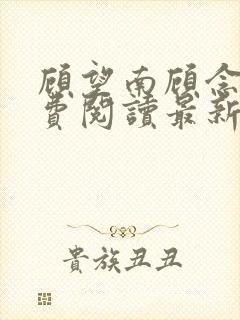 顾望南顾念
费阅读最新
贵族丑丑